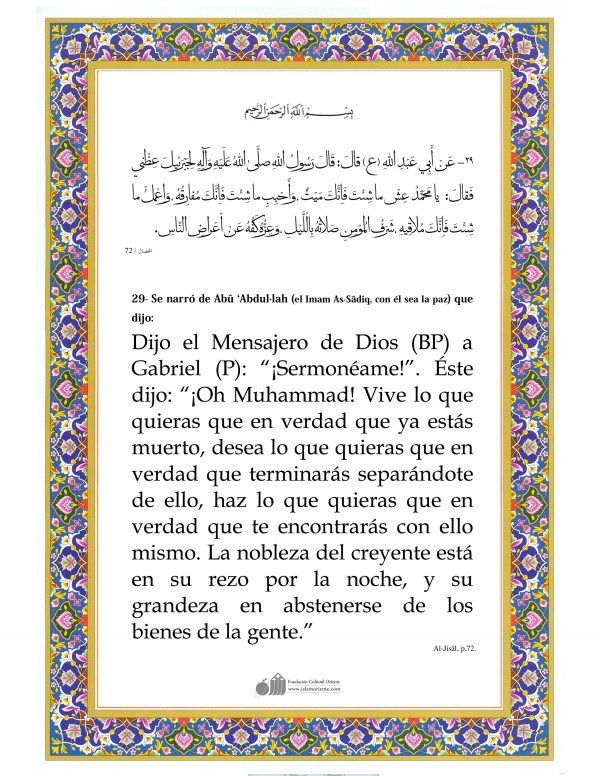 بِسْمِ اللَّهِ الرَّحْمَنِ الرَّحِيمِ
٢٩- عَن أَبِي عَبدِ اللهِ (ع) قالَ: قالَ رَسولُ اللهِ صَلَّى اللهُ عَلَيهِ وَآلِهِ لِجَبرَئيلَ عِظني
فَقالَ: يا مُحَمَّدُ عِش ما شِئتَ فَإِنَّكَ مَيِّتٌ، وَأَحبِب ما شِئتَ فَإِنَّكَ مُفارِقُهُ، وَاعمَل ما
شِئتَ فَإِنَّكَ مُلاقيهِ، شَرَفُ المُؤمِنِ صَلاتُهُ بِاللَّيلِ، وَعِزُّهُ كَفُّهُ عَن أَعراضِ النّاسِ.
الخصال / 72
29- Se narró de Abū ‘Abdul·lah (el Imam As-Sādiq, con él sea la paz) que
dijo:
Dijo el Mensajero de Dios (BP) a
Gabriel (P): “¡Sermonéame!”. Éste
dijo: “¡Oh Muhammad! Vive lo que
quieras que en verdad que ya estás
muerto, desea lo que quieras que en
verdad que terminarás separándote
de ello, haz lo que quieras que en
verdad que te encontrarás con ello
mismo. La nobleza del creyente está
en su rezo por la noche, y su
grandeza en abstenerse de los
bienes de la gente.”
Al-Jisāl, p.72.
Fundación Cultural Oriente
www.islamoriente.com